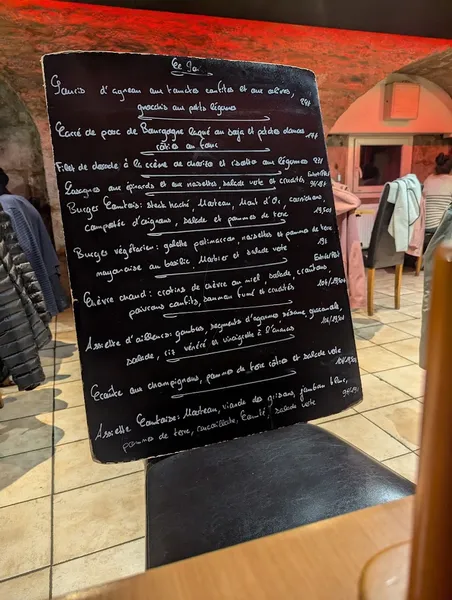 Ce Soir
Souris d'agneau aux tomates confites et aux olives, 24€
gnocchis aux petits légumes
Carré de porc de Bourgogne laqué au soja et patates douces 17€
rôties au four
Filet de daurade à la crème de chorizo et risotto aux légumes 22€
Lasagnes aux épinards et aux noisettes, salade verte et crudités
Burger Comtois: steak haché, Morteau, Mont d'Or, cornichons,
compotée d'oignons, salade et pommes de terre 19,50€
Burger végétarien: galette potimarron, noisettes et pommes de terre
mayonnaise au basilic, Morbier et salade verte 19€
Chèvre chaud: crottins de chèvre au miel, salade, croûtons,
poivrons confits, jambon fumé et crudités
Assiette d'ailleurs: gambas, segments d'agrumes, sésame, guacamole,
salade, riz vénéré et vinaigrette à l'ananas
Croûte aux champignons, pommes de terre rôties et salade verte
Assiette Comtoise: Morteau, viande des grisons, jambon blanc,
pommes de terre, cancoillotte, Comté, salade verte